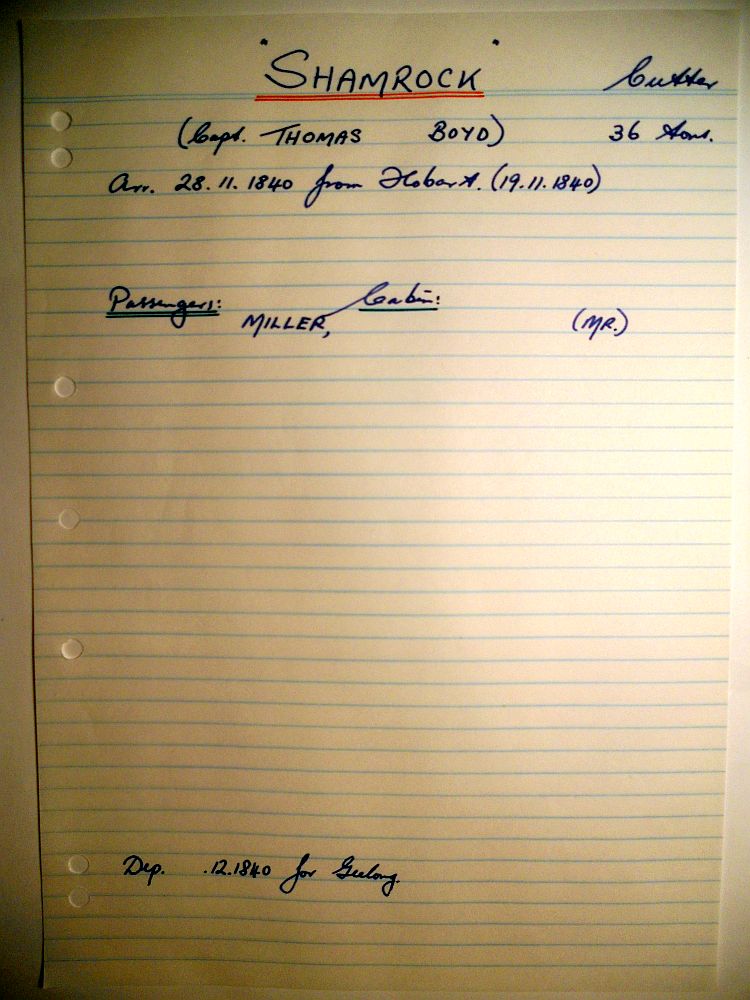 "SHAMROCK" Cutter
(Capt. THOMAS BOYD) 36 tons.
Arr. 28.11.1840 from Hobart. (19.11.1840)
Passengers: Cabin:
MILLER, (MR.)
Dep. .12.1840 for Geelong.